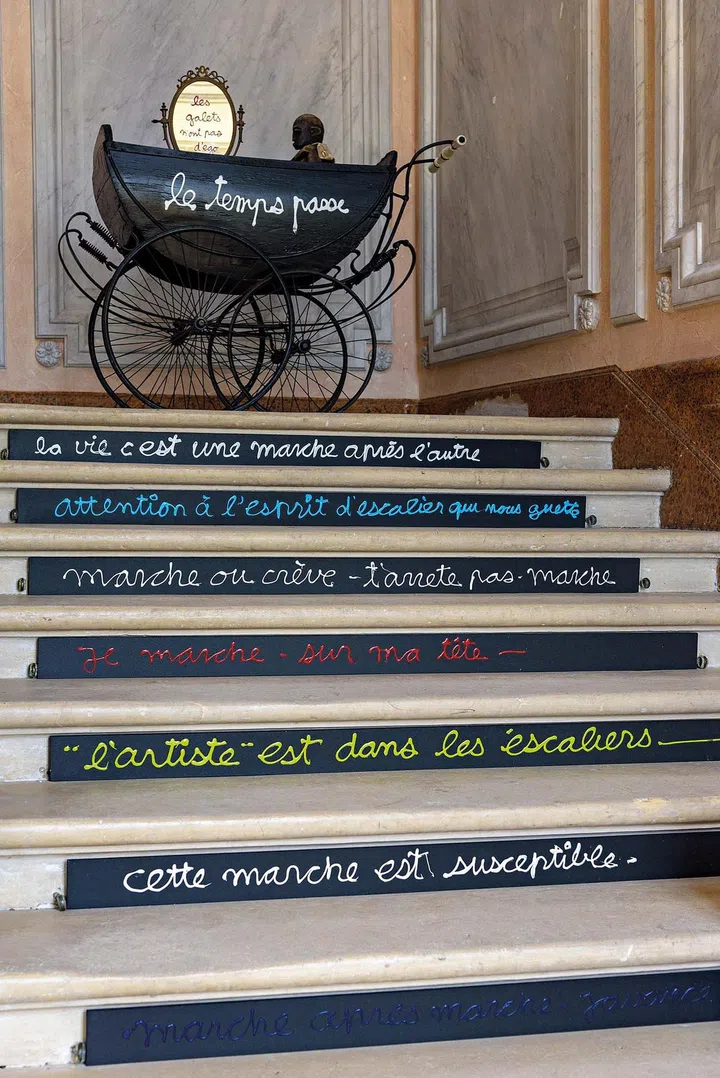 les
galets
n'ont pas
d'ego
le temps passe
la vie c'est une marche après l'autre
attention à l'esprit d'escalier qui nous guette
marche ou crève - t'arrete pas - marche
je marche - sur ma tête -
"l'artiste" est dans les éscaliers
cette marche est susceptible.
marche après marche j'avance